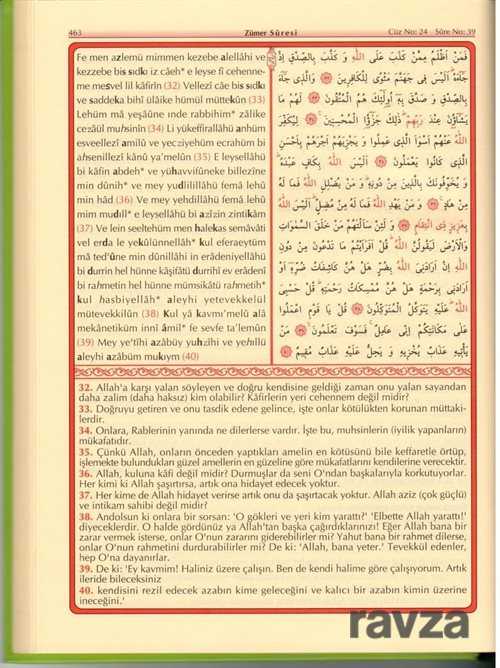 463 Zümer Sûresi Cüz No: 24 Sûre No: 39
Fe men azlemü mimmen kezebe alellâhi ve
kezzebe bis sıdkı iz câeh* e leyse fî cehenne-
me mesvel lil kâfirîn (32) Vellezî câe bis sıdkı
ve saddeka bihî ülâike hümül müttekûn (33)
Lehüm mâ yeşâûne ınde rabbihim* zâlike
cezâül muhsinîn (34) Li yükeffirallâhü anhüm
esveellezî amilû ve yecziyehüm ecrahüm bi
ahsenillezî kânû ya'melûn (35) E leysellâhü
bi kâfin abdeh* ve yühavvifûneke billezîne
min dûnih* ve mey yudlilillâhü femâ lehû
min hâd (36) Ve mey yehdillâhü femâ lehû
mim mudıll* e leysellâhü bi azîzin zintikâm
(37) Ve lein seeltehüm men halekas semâvâti
vel erda le yekûlünnellâh* kul eferaeytüm
mâ ted'ûne min dûnillâhi in erâdeniyellâhü
bi durrin hel hünne kâşifâtü durrihî ev erâdenî
bi rahmetin hel hünne mümsikâtü rahmetih*
kul hasbiyellâh* aleyhi yetevekkelül
mütevekkilûn (38) Kul yâ kavmı'melû alâ
mekânetiküm innî âmil* fe sevfe ta'lemûn
(39) Mey ye'tîhi azâbüy yuhzîhi ve yehıllü
aleyhi azâbüm mukıym (40)
فَمَنْ اَظْلَمُ مِمَّنْ كَذَبَ عَلَى اللّٰهِ وَ كَذَّبَ بِالصِّدْقِ اِذْ
جَٓاءَهُ اَلَيْسَ فٖى جَهَنَّمَ مَثْوًى لِلْكَافِرٖينَ وَالَّذٖى جَٓاءَ
بِالصِّدْقِ وَ صَدَّقَ بِهٖ اُولٰٓئِكَ هُمُ الْمُتَّقُونَ لَهُمْ مَا
يَشَٓاؤُنَ عِنْدَ رَبِّهِمْ ذٰلِكَ جَزٰٓؤُا الْمُحْسِنٖينَ لِيُكَفِّرَ
اللّٰهُ عَنْهُمْ اَسْوَاَ الَّذٖى عَمِلُوا وَ يَجْزِيَهُمْ اَجْرَهُمْ بِاَحْسَنِ
الَّذٖى كَانُوا يَعْمَلُونَ اَلَيْسَ اللّٰهُ بِكَافٍ عَبْدَهُ
وَ يُخَوِّفُونَكَ بِالَّذٖينَ مِنْ دُونِهٖ وَ مَنْ يُضْلِلِ اللّٰهُ فَمَا لَهُ
مِنْ هَادٍ وَ مَنْ يَهْدِ اللّٰهُ فَمَا لَهُ مِنْ مُضِلٍّ اَلَيْسَ اللّٰهُ
بِعَزٖيزٍ ذِى انْتِقَامٍ وَ لَئِنْ سَاَلْتَهُمْ مَنْ خَلَقَ السَّمٰوَاتِ
وَالْاَرْضَ لَيَقُولُنَّ اللّٰهُ قُلْ اَفَرَاَيْتُمْ مَا تَدْعُونَ مِنْ دُونِ
اللّٰهِ اِنْ اَرَادَنِىَ اللّٰهُ بِضُرٍّ هَلْ هُنَّ كَاشِفَاتُ ضُرِّهٖ اَوْ
اَرَادَنٖى بِرَحْمَةٍ هَلْ هُنَّ مُمْسِكَاتُ رَحْمَتِهٖ قُلْ حَسْبِىَ
اللّٰهُ عَلَيْهِ يَتَوَكَّلُ الْمُتَوَكِّلُونَ قُلْ يَا قَوْمِ اعْمَلُوا
عَلٰى مَكَانَتِكُمْ اِنّٖى عَامِلٌ فَسَوْفَ تَعْلَمُونَ مَنْ
يَاْتٖيهِ عَذَابٌ يُخْزٖيهِ وَ يَحِلُّ عَلَيْهِ عَذَابٌ مُقٖيمٌ
32. Allah'a karşı yalan söyleyen ve doğru kendisine geldiği zaman onu yalan sayandan
daha zalim (daha haksız) kim olabilir? Kâfirlerin yeri cehennem değil midir?
33. Doğruyu getiren ve onu tasdik edene gelince, işte onlar kötülükten korunan müttaki-
lerdir.
34. Onlara, Rablerinin yanında ne dilerlerse vardır. İşte bu, muhsinlerin (iyilik yapanların)
mükafatıdır.
35. Çünkü Allah, onların önceden yaptıkları amelin en kötüsünü bile keffaretle örtüp,
işlemekte bulundukları güzel amellerin en güzeline göre mükafatlarını kendilerine verecektir.
36. Allah, kuluna kâfi değil midir? Durmuşlar da seni O'ndan başkalarıyla korkutuyorlar.
Her kimi ki Allah şaşırtırsa, artık ona hidayet edecek yoktur.
37. Her kime de Allah hidayet verirse artık onu da şaşırtacak yoktur. Allah aziz (çok güçlü)
ve intikam sahibi değil midir?
38. Andolsun ki onlara bir sorsan: 'O gökleri ve yeri kim yarattı?' 'Elbette Allah yarattı!'
diyeceklerdir. O halde gördünüz ya Allah'tan başka çağırdıklarınızı! Eğer Allah bana bir
zarar vermek isterse, onlar O'nun zararını giderebilirler mi? Yahut bana bir rahmet dilerse,
onlar O'nun rahmetini durdurabilirler mi? De ki: 'Allah, bana yeter.' Tevekkül edenler,
hep O'na dayanırlar.
39. De ki: 'Ey kavmim! Haliniz üzere çalışın. Ben de kendi halime göre çalışıyorum. Artık
ileride bileceksiniz
40. kendisini rezil edecek azabın kime geleceğini ve kalıcı bir azabın kimin üzerine
ineceğini.'
ravza